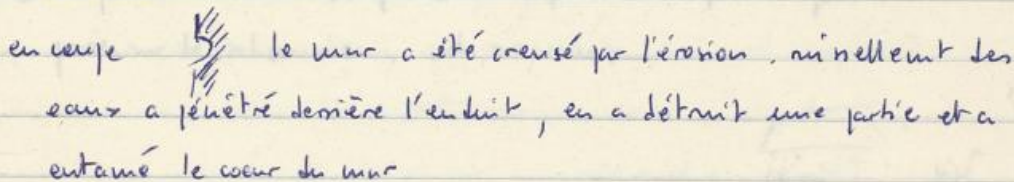 en coupe le mur a été creusé par l'érosion. ruissellemt des
eaux a pénétré derrière l'enduit, en a détruit une partie et a
entamé le coeur du mur